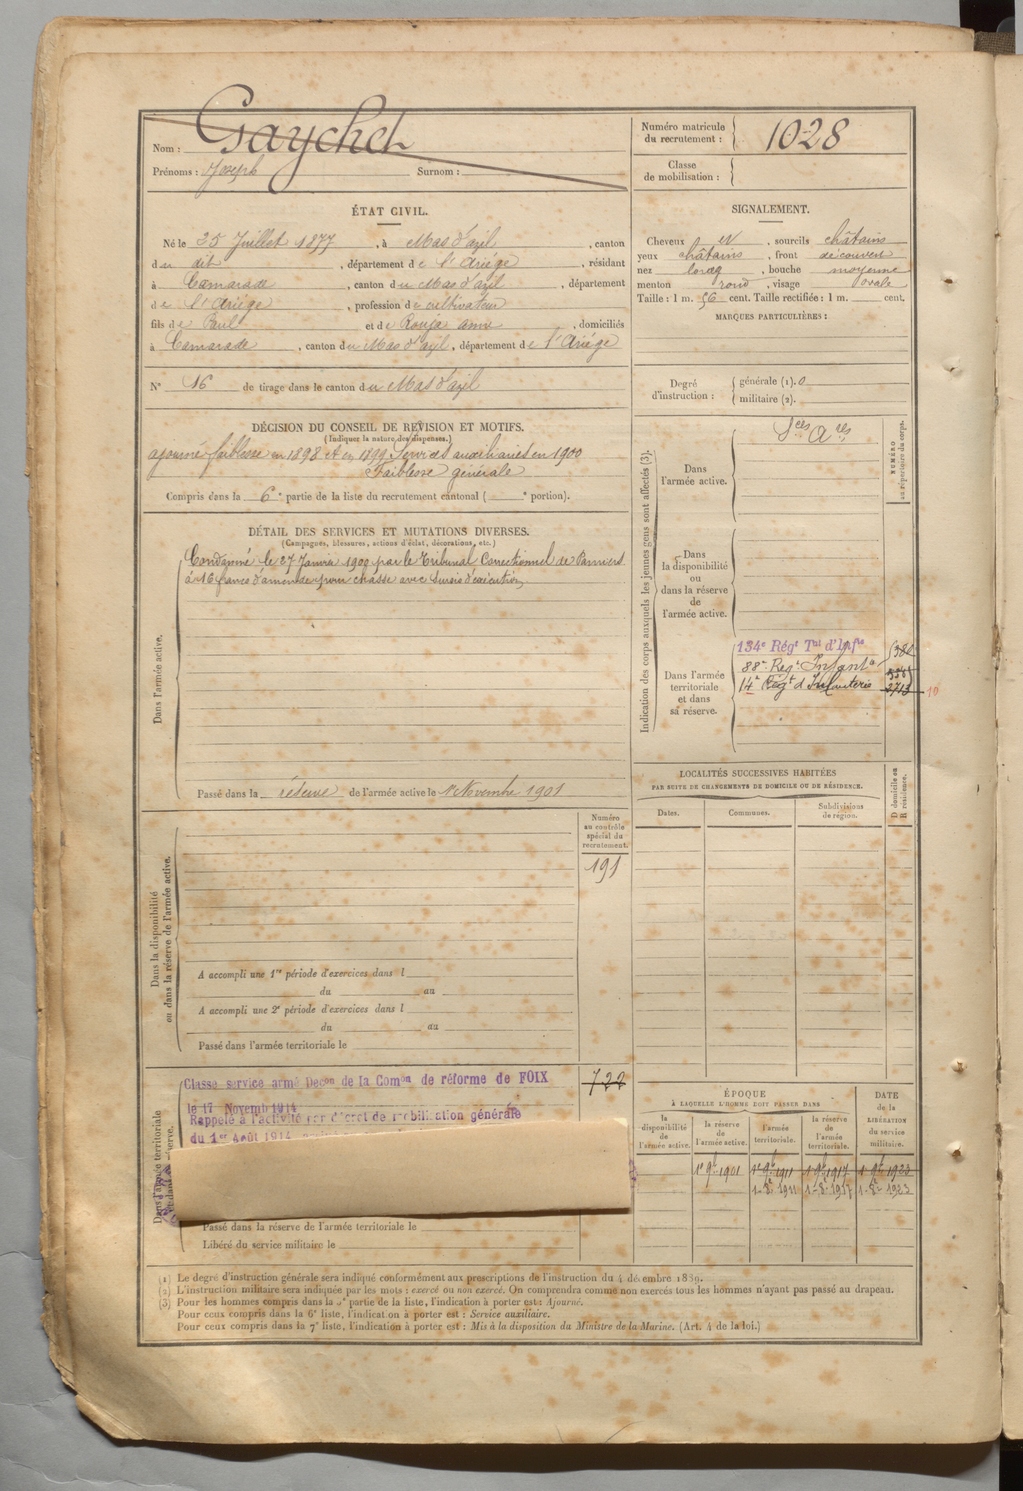 Nom : Gaychet
Prénoms : Joseph Surnom :
Numéro matricule du recrutement : 1028
Classe de mobilisation :
ÉTAT CIVIL.
Né le 25 Juillet 1877, à Mas d'azil, canton
du dit, département de l'Ariége, résidant
à Camarade, canton du Mas d'azil, département
de l'Ariége, profession de cultivateur
fils de Paul et de Rouja anne, domiciliés
à Camarade, canton du Mas d'azil, département de l'Ariége
N° 16 de tirage dans le canton du Mas d'azil
SIGNALEMENT.
Cheveux et, sourcils châtains
yeux châtains, front découvert
nez long, bouche moyenne
menton rond, visage ovale
Taille : 1 m. 56 cent. Taille rectifiée : 1 m. cent.
MARQUES PARTICULIÈRES :
Degré d'instruction : générale (1). 0
militaire (2).
DÉCISION DU CONSEIL DE REVISION ET MOTIFS.
(Indiquer la nature des dispenses.)
ajourné faiblesse en 1898 et en 1899 Services auxiliaires en 1900
Faiblesse générale
Compris dans la 6e partie de la liste du recrutement cantonal ( e portion).
DÉTAIL DES SERVICES ET MUTATIONS DIVERSES.
(Campagnes, blessures, actions d'éclat, décorations, etc.)
Condamné le 27 Janvier 1900 par le Tribunal Correctionnel de Pamiers
à 16 francs d'amende pour chasse avec sursis d'exécution
Dans l'armée active.
Passé dans la réserve de l'armée active le 1 Novembre 1901
Indication des corps auxquels les jeunes gens sont affectés (3).
NUMÉRO au répertoire du corps.
Dans l'armée active.
Sces Ares
Dans la disponibilité ou dans la réserve de l'armée active.
Dans l'armée territoriale et dans sa réserve.
134e Régt Tal d'Infie
88e Regt Infant
14e Regt d'Infanterie 2713 10
LOCALITÉS SUCCESSIVES HABITÉES
PAR SUITE DE CHANGEMENTS DE DOMICILE OU DE RÉSIDENCE.
D domicile ou R résidence.
Dates.
Communes.
Subdivisions de région.
Dans la disponibilité ou dans la réserve de l'armée active.
Numéro au contrôle spécial du recrutement.
191
A accompli une 1re période d'exercices dans l
du au
A accompli une 2e période d'exercices dans l
du au
Passé dans l'armée territoriale le
Dans l'armée territoriale
Classé service armé Decon de la Comon de réforme de FOIX
722
le 17 Novemb 1914
Rappelé à l'activité par décret de mobilisation générale
du 1er Août 1914
Passé dans la réserve de l'armée territoriale le
Libéré du service militaire le
ÉPOQUE
À LAQUELLE L'HOMME DOIT PASSER DANS
la disponibilité de l'armée active.
la réserve de l'armée active.
l'armée territoriale.
la réserve de l'armée territoriale.
DATE de la LIBÉRATION du service militaire.
1r 9b 1901 1r 9b 1911 1 9b 1917 1 9b 1923
1-8b 1911 1-8b 1917 1-8b 1923
(1) Le degré d'instruction générale sera indiqué conformément aux prescriptions de l'instruction du 4 décembre 1889.
(2) L'instruction militaire sera indiquée par les mots : exercé ou non exercé. On comprendra comme non exercés tous les hommes n'ayant pas passé au drapeau.
(3) Pour les hommes compris dans la 5e partie de la liste, l'indication à porter est : Ajourné.
Pour ceux compris dans la 6e liste, l'indication à porter est : Service auxiliaire.
Pour ceux compris dans la 7e liste, l'indication à porter est : Mis à la disposition du Ministre de la Marine. (Art. 4 de la loi.)